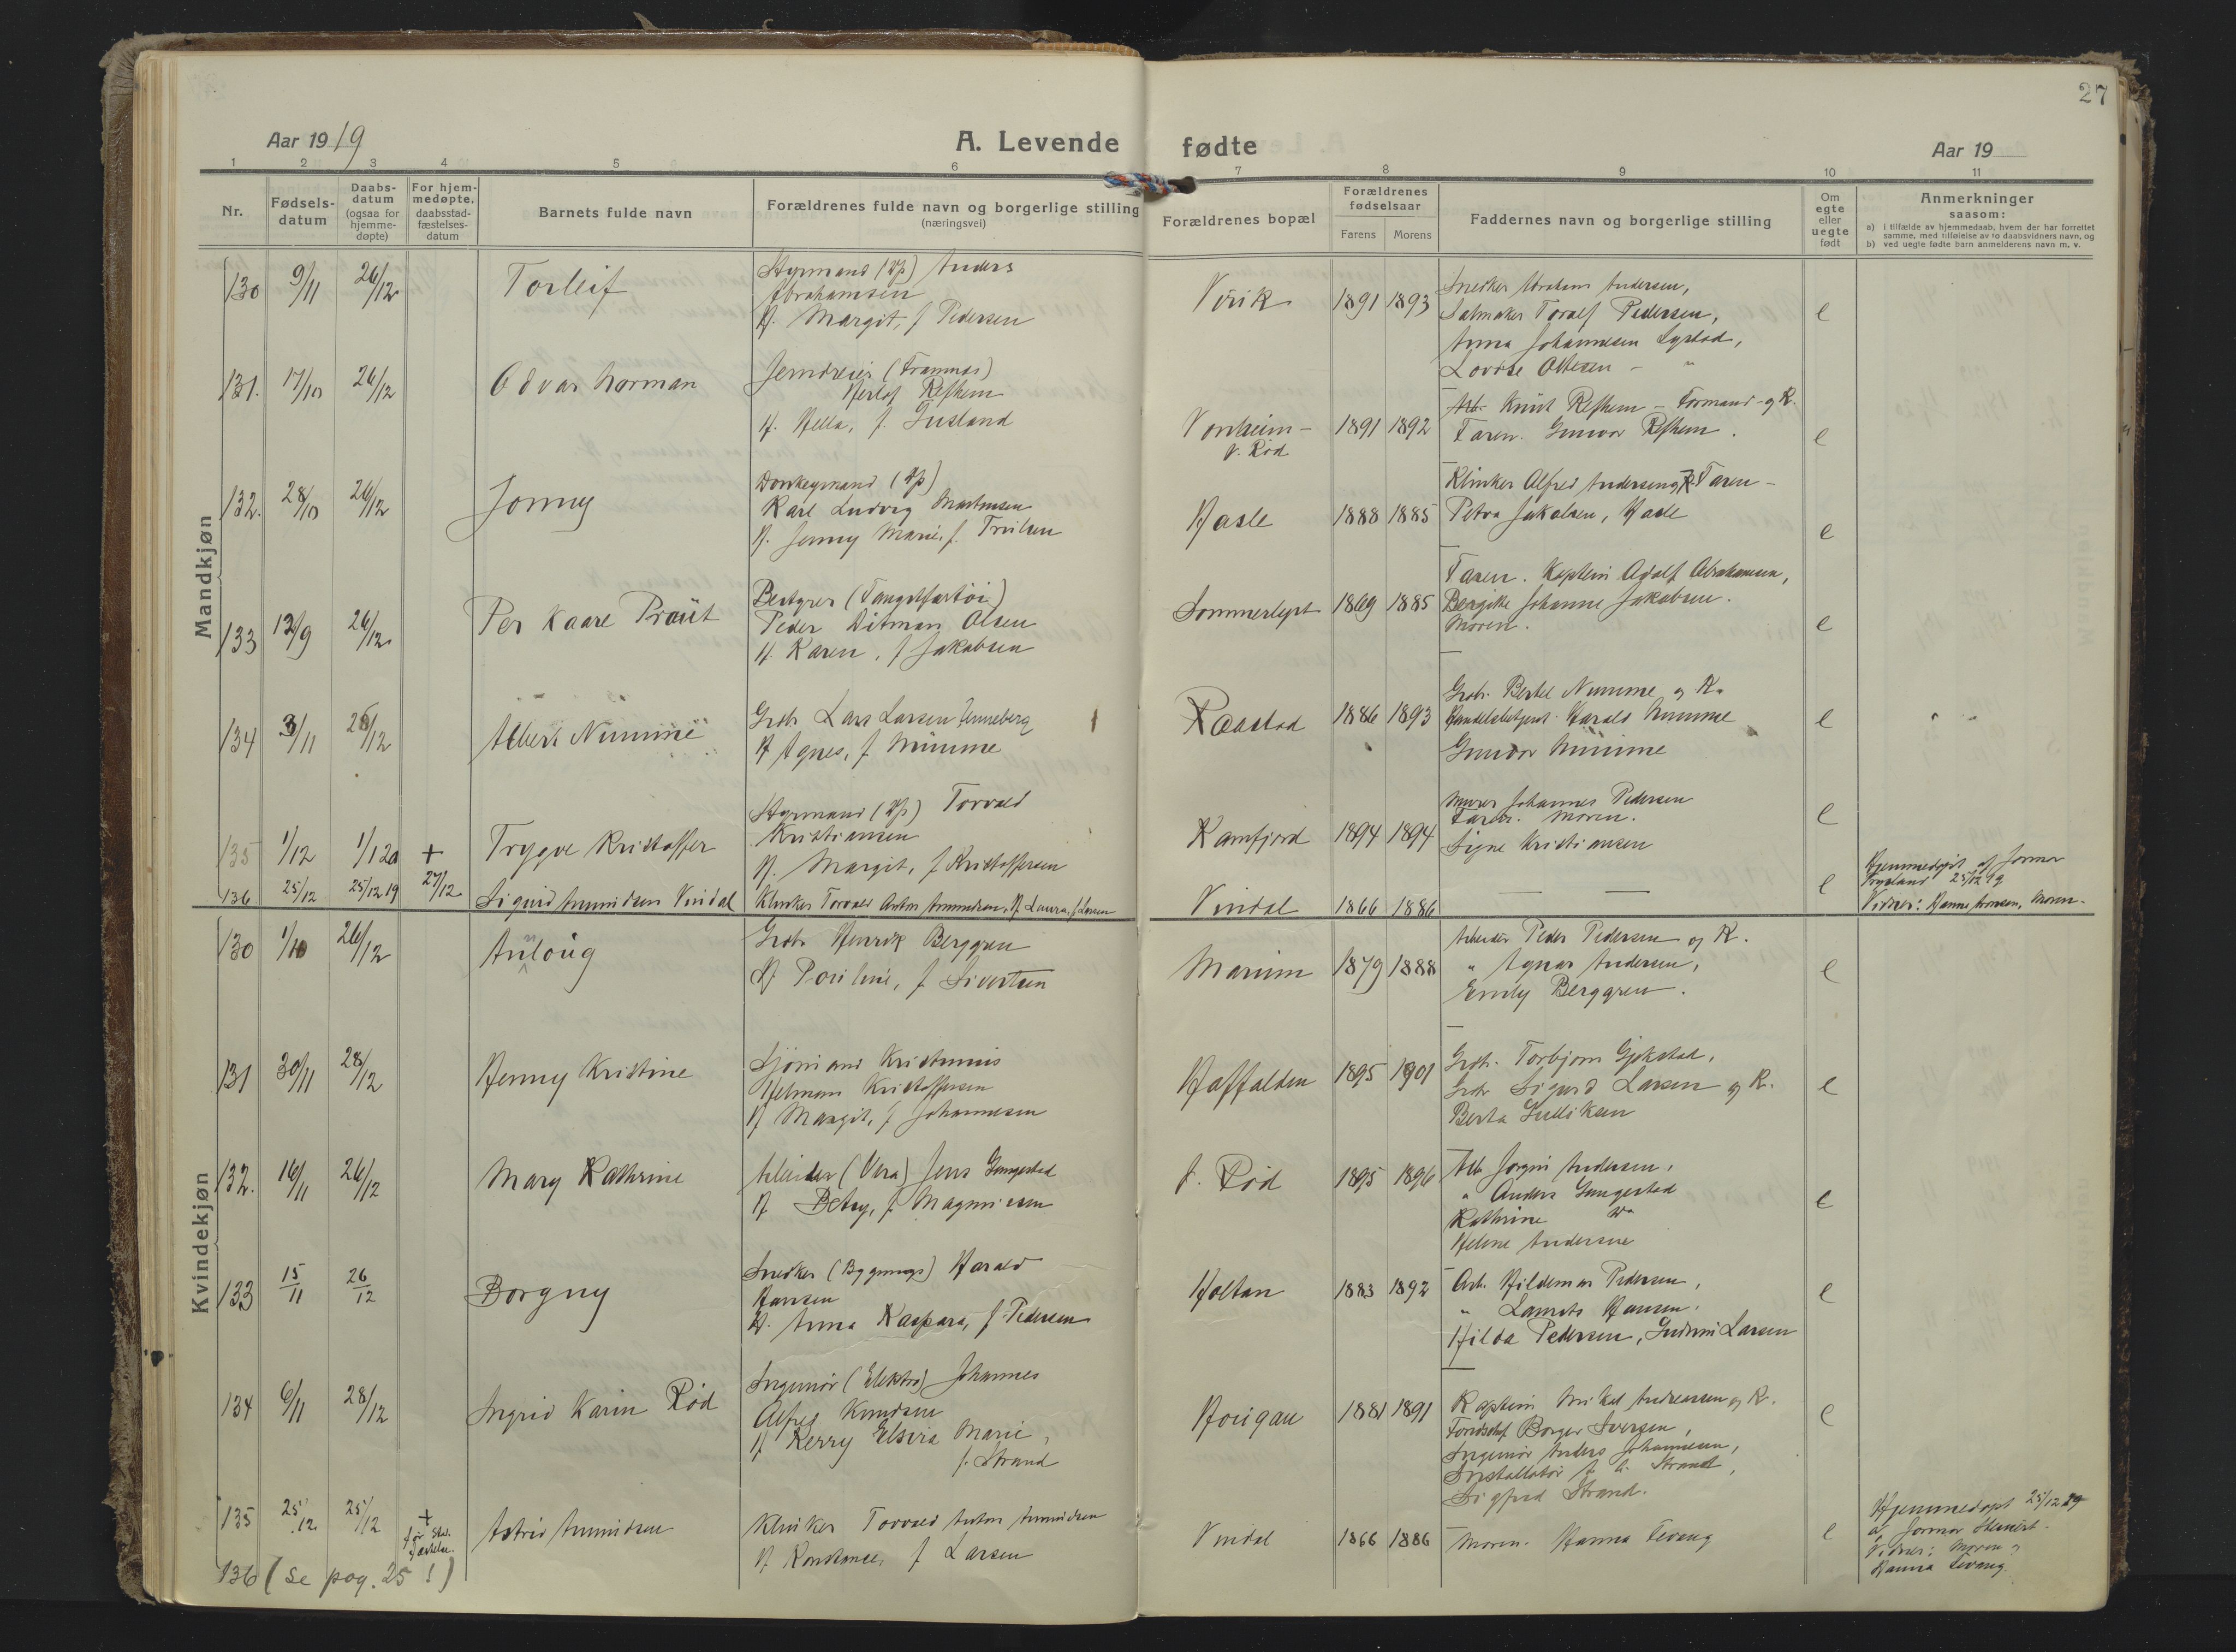 27
Aar 1919
A. Levende fødte
Aar 19
1 2 3 4 5 6 7 8 9 10 11
Nr.
Fødsels-
datum
Daabs-
datum
(ogsaa for
hjemme-
døpte)
For hjem-
medøpte,
daabsstad-
fæstelses-
datum
Barnets fulde navn
Forældrenes fulde navn og borgerlige stilling
(næringsvei)
Forældrenes bopæl
Forældrenes
fødselsaar
Farens Morens
Faddernes navn og borgerlige stilling
Om
egte
eller
uegte
født
Anmerkninger
saasom:
a) i tilfælde av hjemmedaab, hvem der har forrettet
samme, med tilføielse av to daabsvidners navn, og
b) ved uegte fødte barn anmelderens navn m. v.
Mandkjøn
130 9/11 26/12 Torleif
Styrmand (Hp) Anders
Abrahamsen
H. Margit, f Pedersen
Virik 1891 1893
Snedker Abraham Andersen,
Salmaker Toralf Pedersen,
Anna Johannesen
Lovise
e
131. 17/10 26/12 Odvar Norman
Jerndreier (Framnæs)
Herlof Refhem
H. Hella, f.
V. Rød
1891 1892
Arb. Knut Refhem - Formand - og K.
Faren. Gunvor Refhem.
e
132. 28/10 26/12 Jonny
Donkeymand (Hp)
Karl Ludvig Martinsen
H. Jenny Marie, f.
Hasle 1888 1885
Klinker Alfred Andersen og K. Faren -
Petra Jakobsen, Hasle
e
133 12/9 26/12 Per Kaare
Bestyrer (Fangstfartøi)
Peder Ditman Olsen
H. Karen, f Jakobsen
1869 1885
Faren. Kaptein Adolf Abrahamsen,
Johanne Jakobsen.
Moren.
e
134 3/11 26/12 Albert Nümme
Grdbr Lars Larsen
H Agnes, f Nümme
Raastad 1886 1893
Grdbr. Bertel Numme og K.
Handelsbetjent Harald Numme
Gunvor Nümme
e
135 1/12 1/1 20 + Trygve Kristoffer
Styrmand (Hp) Torvald
Kristiansen
H. Margit, f Kristoffersen
Kamfjord 1894 1894
Murer Johannes Pedersen
Faren. Moren.
Signe Kristiansen
e
136 25/12 25/12 19 27/12 Sigurd Amundsen Vindal
Klinker Torvald Anton Amundsen, H. Laura, f Larsen
Vindal 1866 1886
e
Hjemmedøpt af Jormor
25/12 19
Vidner: Hanna Moren.
Kvindekjøn
130 1/10 26/12
Grdbr Henrik Berggren
H Pouline, f Sivertsen
Marum 1879 1888
Arbeider Peder Pedersen og K.
" Agnar Andersen,
Emily Berggren.
e
131 30/11 28/12 Henny Kristine
Sjømand Kristinius
Helman Kristoffersen
H Margit, f Johannesen
Haffalden 1895 1901
Grdbr. Torbjørn Gjekstad,
Grdbr Sigurd Larsen og K.
Berta Gulliksen
e
132. 16/11 26/12 Mary Kathrine
Arbeider (Vera) Jens Gangestad
H Betsy, f Magnussen
Rød 1895 1896
Arb Jørgen Andersen,
" Anders Gangestad
Kathrine Do
Helene Andersen
e
133 15/11 26/12 Borgny
Snedker (Bygnings) Harald
Hansen
H. Anna Kaspara, f. Pedersen
Holtan 1883 1892
Arb. Hildemar Pedersen,
" Laurits Hansen.
Hilda Pedersen, Gudrun Larsen
e
134 6/11 28/12 Ingrid Karin Rød
Ingeniør (Elektro) Johannes
Alfred Knudsen
H Kerry Elvira Marie,
f. Strand
Hougan 1881 1891
Kaptein Mikal Andreassen og K.
Borger Iversen,
Ingeniør Anders Johannesen,
Installatør Strand,
Sigfred Strand.
e
135 25/12 25/12 +
før Stad-
fæstelse.
Astrid Amundsen
Klinker Torvald Anton Amundsen
H Konstance, f Larsen
Vindal 1866 1886
Moren. Hanna Tevang
e
Hjemmedøpt 25/12 19
af Jormor
Vidner: Moren og
Hanna Tevang.
136 (Se pag. 25!)